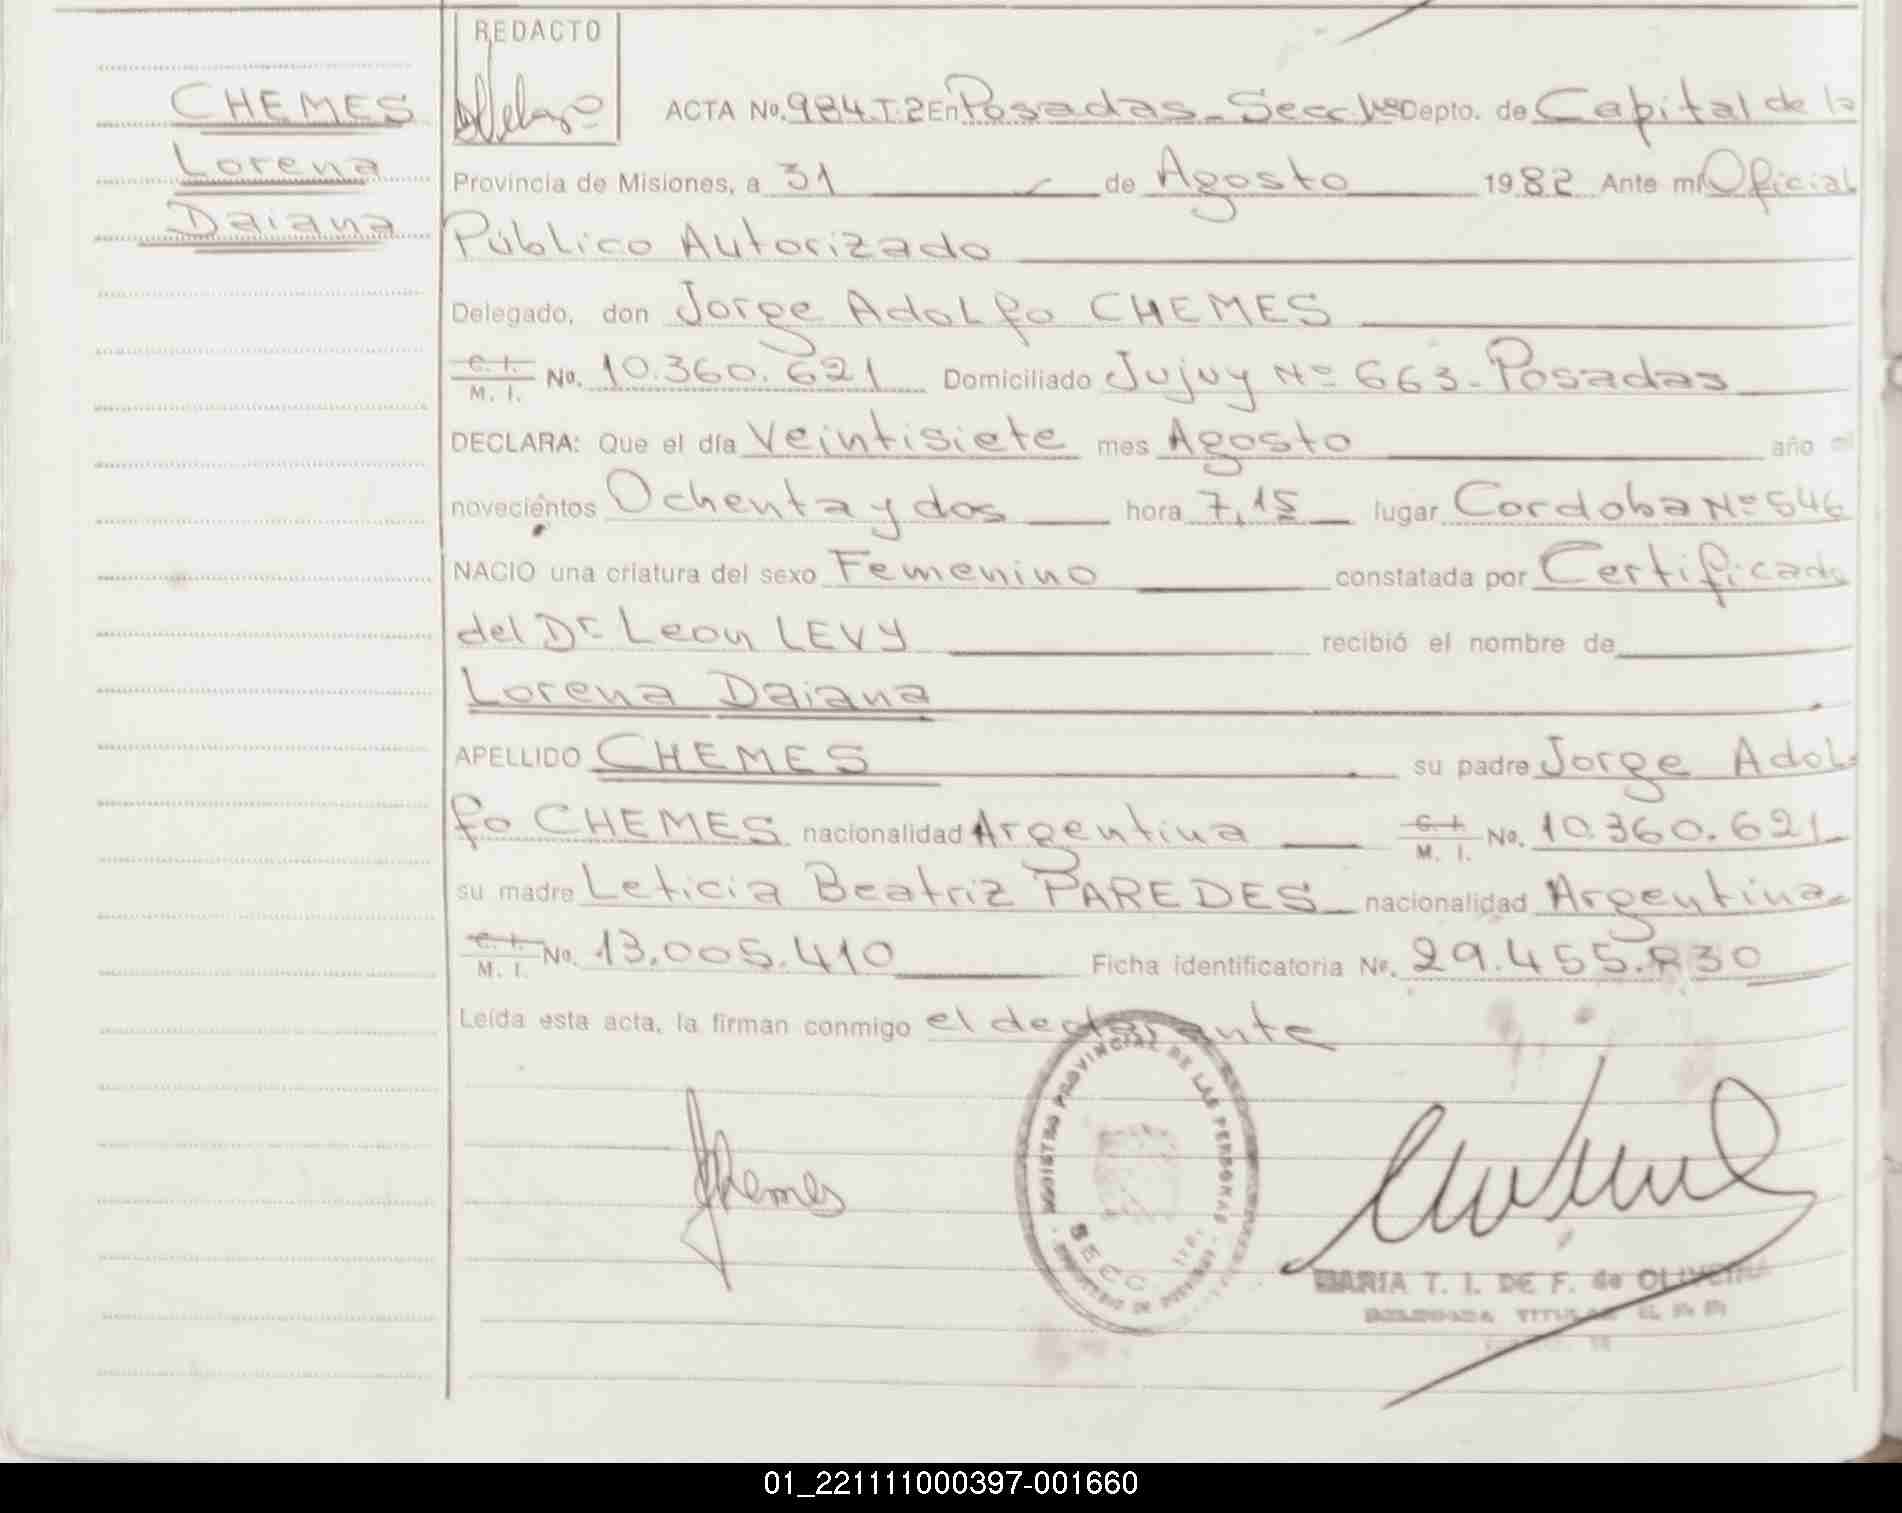 REDACTO
CHEMES
Lorena
Daiana
ACTA No. 984.T:2 En Posadas - Secc 1ra Depto. de Capital de la
Provincia de Misiones, a 31 de Agosto 1982 Ante mí Oficial
Público Autorizado
Delegado, don Jorge Adolfo CHEMES
C. I.
M. I. No. 10.360.621 Domiciliado Jujuy Nº 663 - Posadas
DECLARA: Que el día Veintisiete mes Agosto año
novecientos Ochenta y dos hora 7,15 lugar Cordoba Nº 546
NACIO una criatura del sexo Femenino constatada por Certificado
del Dr Leon LEVY recibió el nombre de
Lorena Daiana
APELLIDO CHEMES su padre Jorge Adol-
fo CHEMES nacionalidad Argentina C. I. M. I. No. 10.360.621
su madre Leticia Beatriz PAREDES nacionalidad Argentina
C. I. M. I. No. 13.005.410 Ficha identificatoria No. 29.455.830
Leída esta acta, la firman conmigo el declarante
REGISTRO PROVINCIAL DE LAS PERSONAS
SECC. 1ra.
Chemes
MARIA T. I. DE F. de OLIVEIRA
DELEGADA TITULAR
01_221111000397-001660